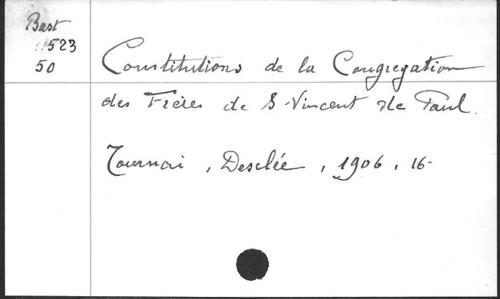 Bast
523
50
Constitutions de la Congregation
des Frères de S. Vincent de Paul.
Tournai, Desclée, 1906, 16-